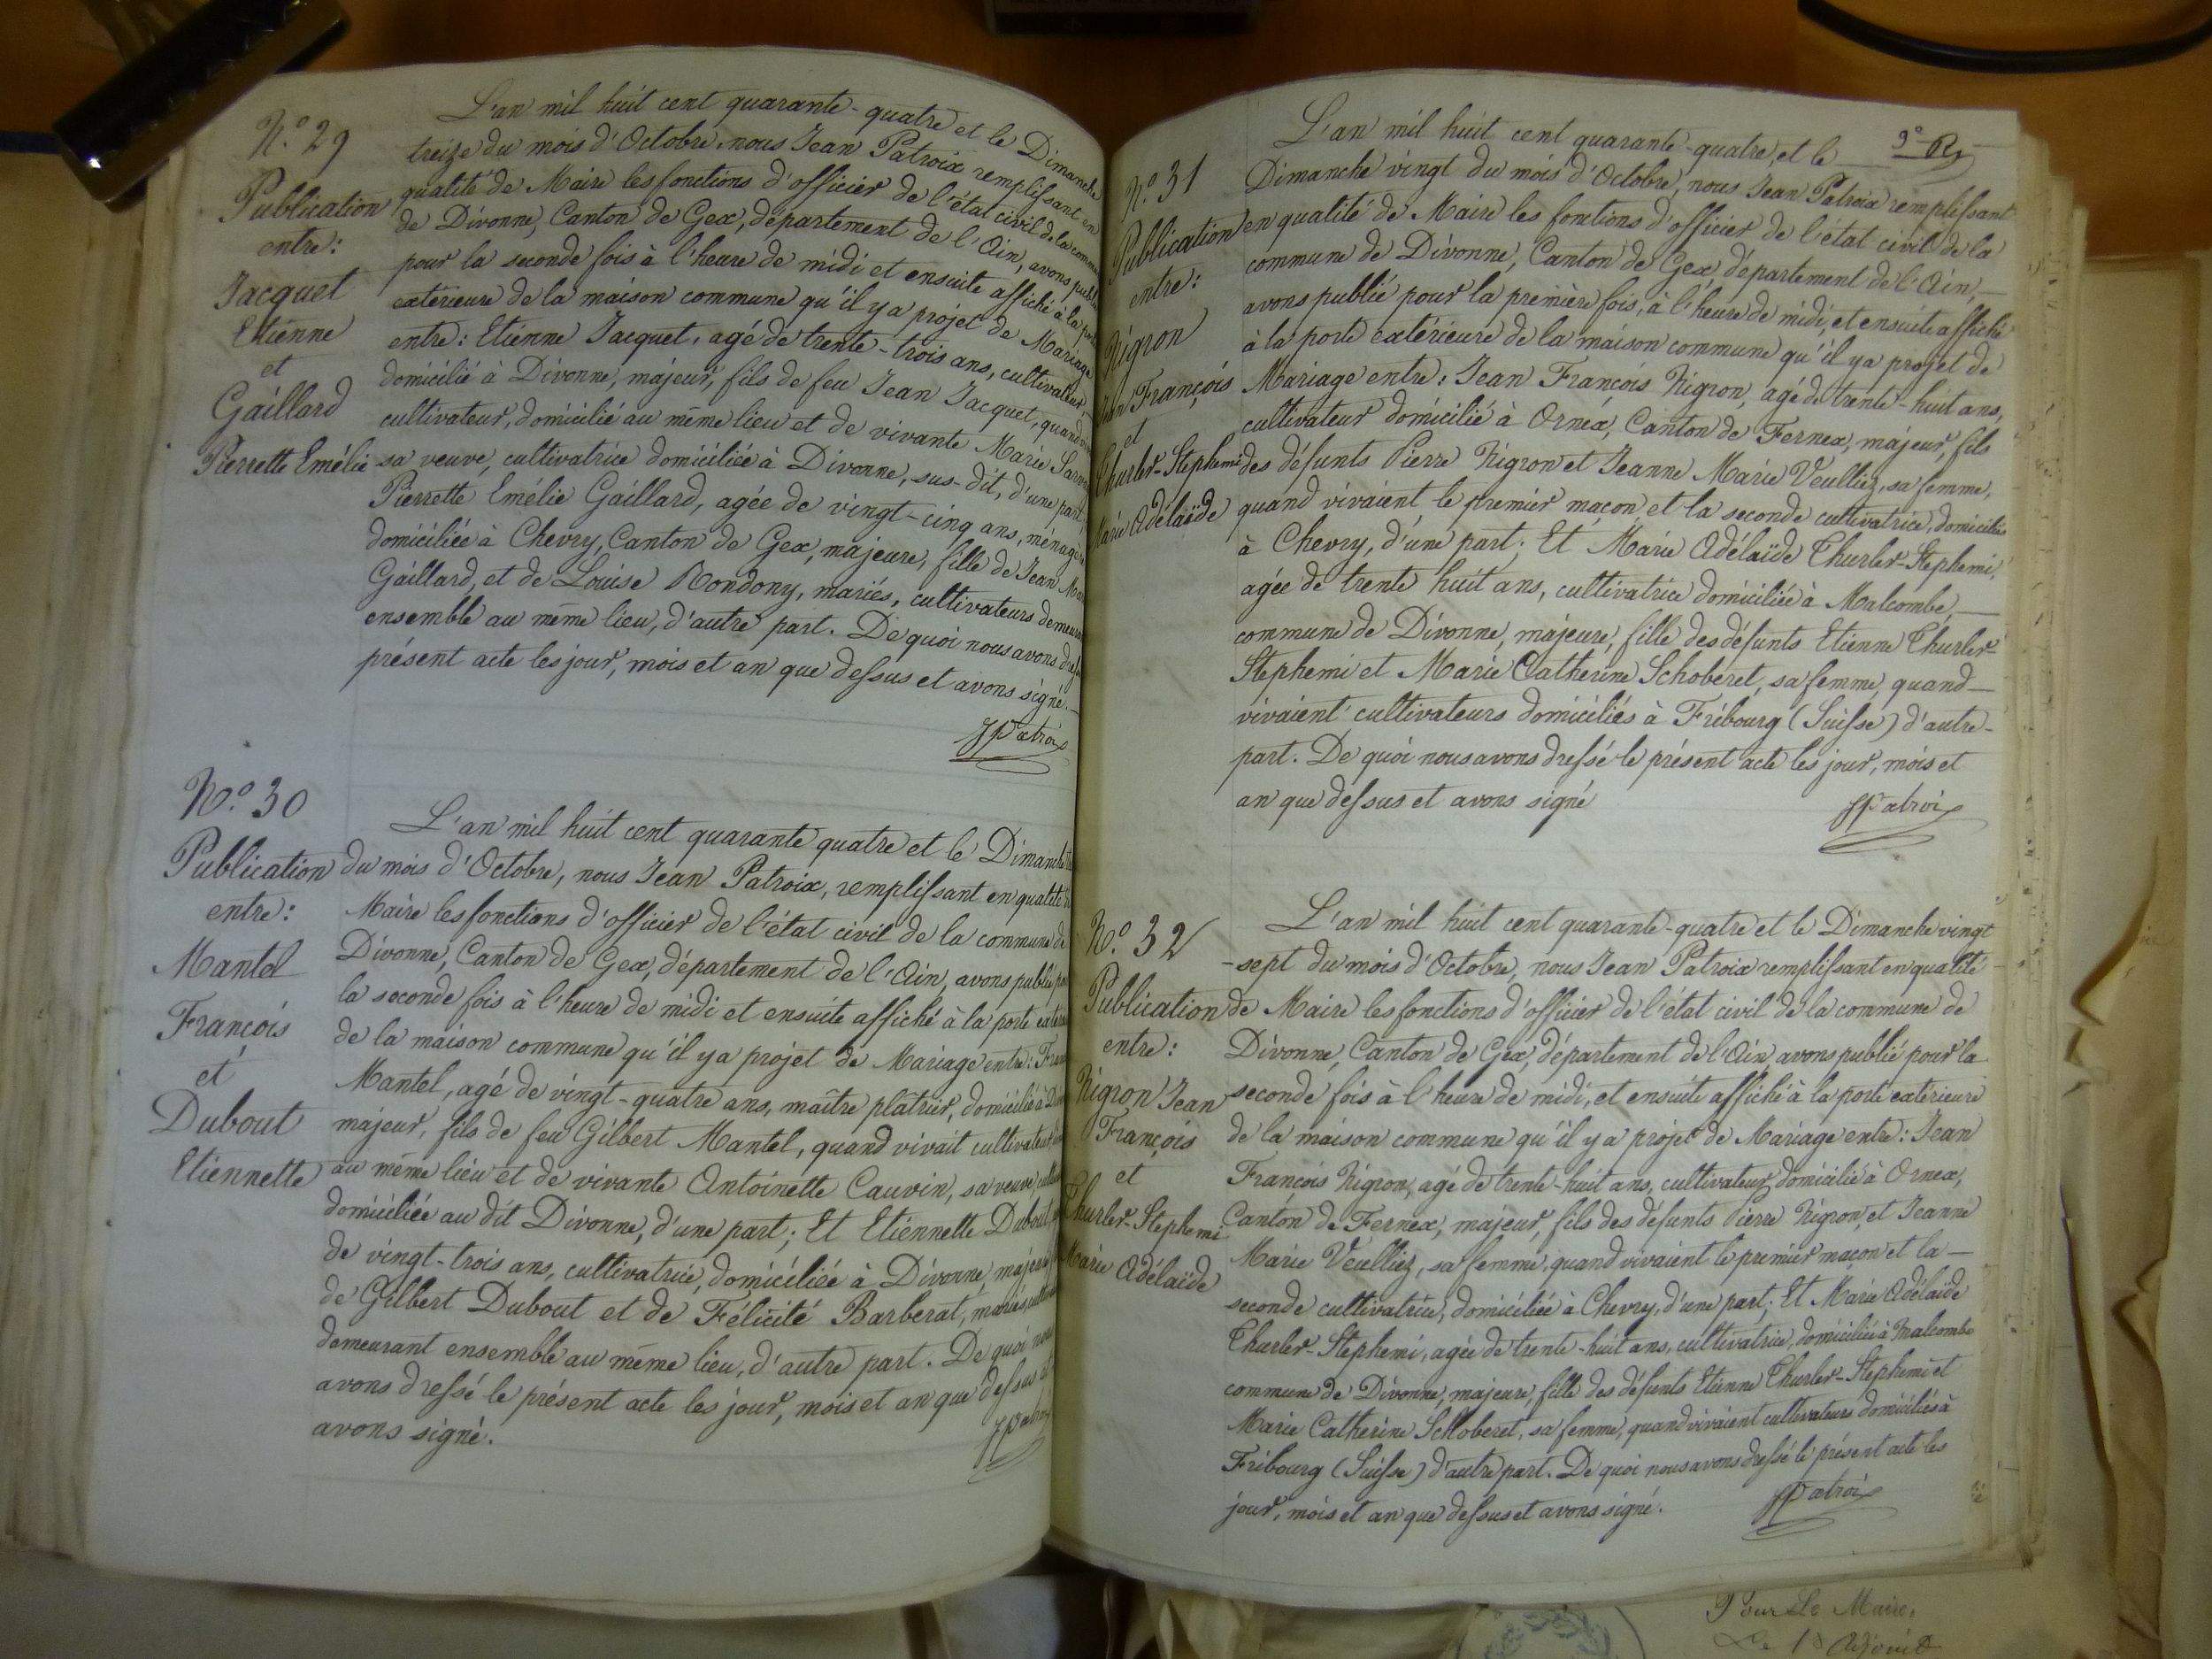 N.º 29
Publication
entre:
Jacquet
Etienne
et
Gaillard
Pierrette Emélie
L'an mil huit cent quarante-quatre et le Dimanche
treize du mois d'Octobre, nous Jean Patroix remplissant en
qualité de Maire les fonctions d'officier de l'état civil de la
de Divonne, Canton de Gex, département de l'Ain, avons
pour la seconde fois à l'heure de midi et ensuite affiché à la
extérieure de la maison commune qu'il y a projet de Mariage
entre: Etienne Jacquet, agé de trente-trois ans, cultivateur,
domicilié à Divonne, majeur, fils de feu Jean Jacquet, quand
cultivateur, domicilié au même lieu et de vivante Marie
sa veuve, cultivatrice domiciliée à Divonne, sus-dit, d'une part
Pierrette Emélie Gaillard, agée de vingt-cinq ans,
domiciliée à Chevry, Canton de Gex, majeure, fille de Jean
Gaillard, et de Louise Rondony, mariés, cultivateurs
ensemble au même lieu, d'autre part. De quoi nous avons
présent acte les jour, mois et an que dessus et avons signé.
JPatroix
N.º 30
Publication
entre:
Mantel
François
et
Dubout
Etiennette
L'an mil huit cent quarante quatre et le Dimanche
du mois d'Octobre, nous Jean Patroix, remplissant en qualité
Maire les fonctions d'officier de l'état civil de la commune de
Divonne, Canton de Gex, département de l'Ain, avons publié
la seconde fois à l'heure de midi et ensuite affiché à la porte
de la maison commune qu'il y a projet de Mariage entre:
Mantel, agé de vingt-quatre ans, maître plâtrier, domicilié à
majeur, fils de feu Gilbert Mantel, quand vivait cultivateur
au même lieu et de vivante Antoinette Cauvin, sa veuve,
domiciliée au dit Divonne, d'une part; Et Etiennette Dubout,
de vingt-trois ans, cultivatrice, domiciliée à Divonne,
de Gilbert Dubout et de Félicité Barberat, mariés,
demeurant ensemble au même lieu, d'autre part. De quoi nous
avons dressé le présent acte les jour, mois et an que dessus et
avons signé.
JPatroix
9e R
N.º 31
Publication
entre:
Nigron
François
et
Thurler-Stephemi
Marie Adélaïde
L'an mil huit cent quarante-quatre, et le
Dimanche vingt du mois d'Octobre, nous Jean Patroix remplissant
en qualité de Maire les fonctions d'officier de l'état civil de la
commune de Divonne, Canton de Gex, département de l'Ain,
avons publié pour la première fois, à l'heure de midi, et ensuite affiché
à la porte extérieure de la maison commune qu'il y a projet de
Mariage entre: Jean François Nigron, agé de trente-huit ans,
cultivateur domicilié à Ornex, Canton de Fernex, majeur, fils
des défunts Pierre Nigron et Jeanne Marie Veulliez, sa femme,
quand vivaient le premier maçon et la seconde cultivatrice, domiciliés
à Chevry, d'une part; Et Marie Adélaïde Thurler-Stephemi,
agée de trente huit ans, cultivatrice domiciliée à Malcombe,
commune de Divonne, majeure, fille des défunts Etienne Thurler-
Stephemi et Marie Catherine Schoberet, sa femme, quand
vivaient cultivateurs domiciliés à Fribourg (Suisse) d'autre
part. De quoi nous avons dressé le présent acte les jour, mois et
an que dessus et avons signé
JPatroix
N.º 32
Publication
entre:
Nigron Jean
François
et
Thurler-Stephemi
Marie Adélaïde
L'an mil huit cent quarante-quatre et le Dimanche vingt
-sept du mois d'Octobre, nous Jean Patroix remplissant en qualité
de Maire les fonctions d'officier de l'état civil de la commune de
Divonne, Canton de Gex, département de l'Ain, avons publié pour la
seconde fois à l'heure de midi, et ensuite affiché à la porte extérieure
de la maison commune qu'il y a projet de Mariage entre: Jean
François Nigron, agé de trente-huit ans, cultivateur, domicilié à Ornex,
Canton de Fernex, majeur, fils des défunts Pierre Nigron, et Jeanne
Marie Veulliez, sa femme, quand vivaient le premier maçon et la
seconde cultivatrice, domiciliée à Chevry, d'une part; Et Marie Adélaïde
Thurler-Stephemi, agée de trente-huit ans, cultivatrice, domiciliée à Malcombe
commune de Divonne, majeure, fille des défunts Etienne Thurler-Stephemi et
Marie Catherine Schoberet, sa femme, quand vivaient cultivateurs domiciliés à
Fribourg (Suisse) d'autre part. De quoi nous avons dressé le présent acte les
jour, mois et an que dessus et avons signé.
JPatroix
Pour Le Maire,